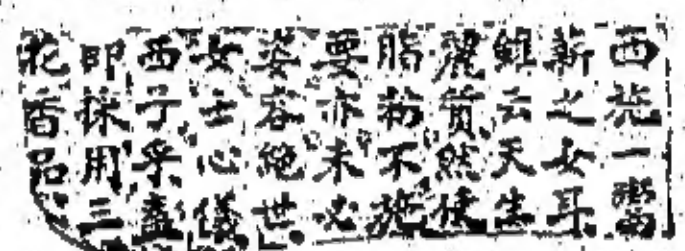 西施一鬻
薪之女耳
雖云天生
麗質然使
脂粉不施
要亦未必
姿容絕世
女士心儀
西子乎盍
即採用三
花香品